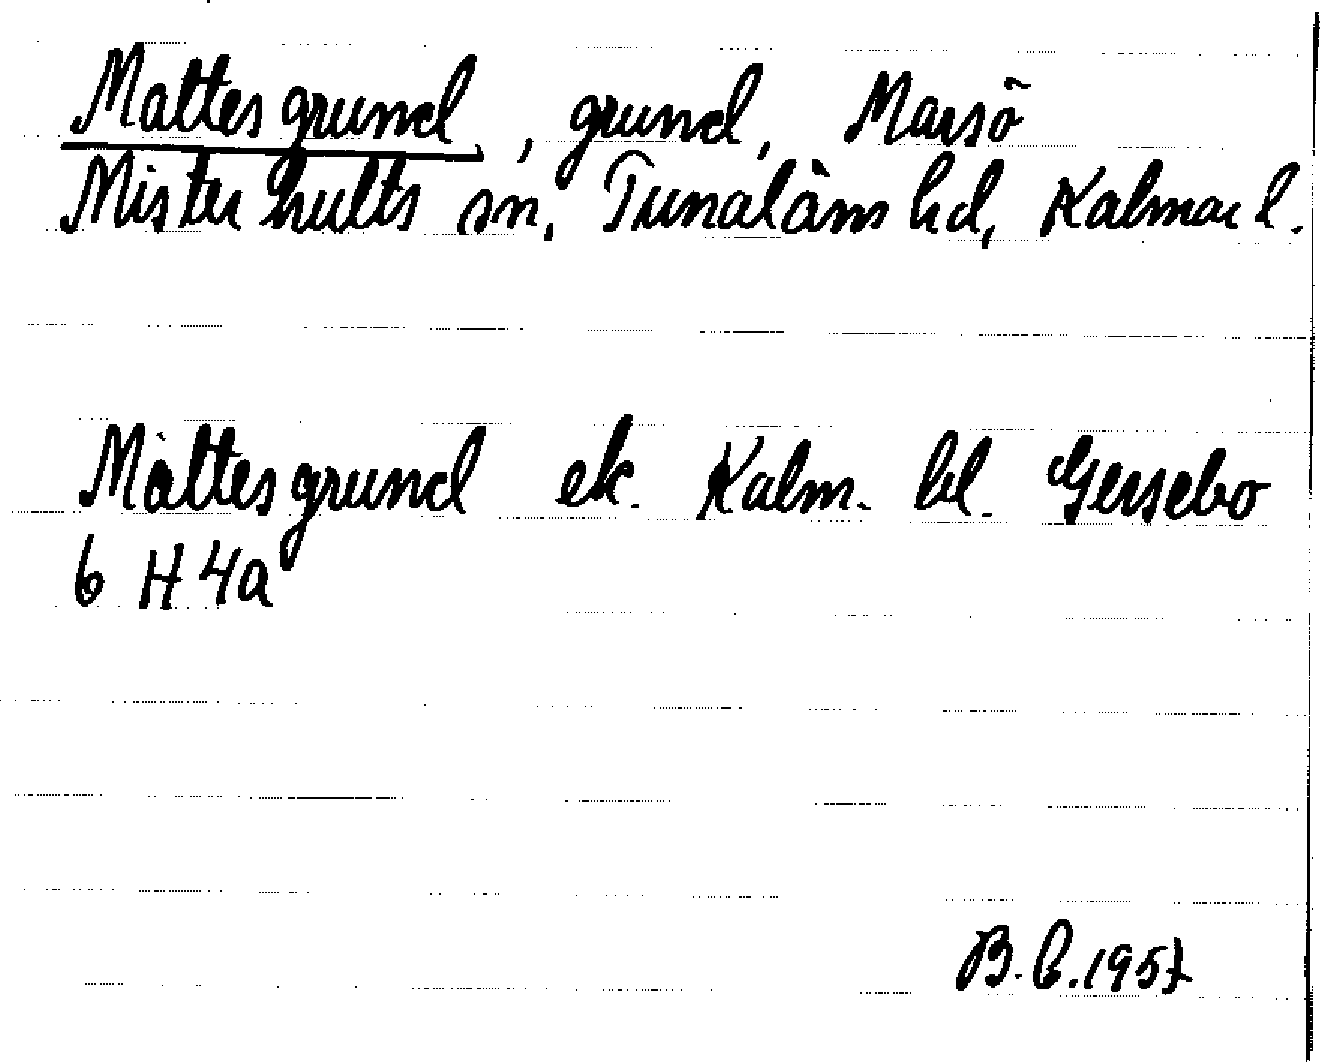 Mattesgrund, grund, Marsö
Misterhults sn, Tunaläns hd, Kalmar l.
Måttesgrund ek. Kalm. bl. Gersebo
6 H 4a
B.C. 1957